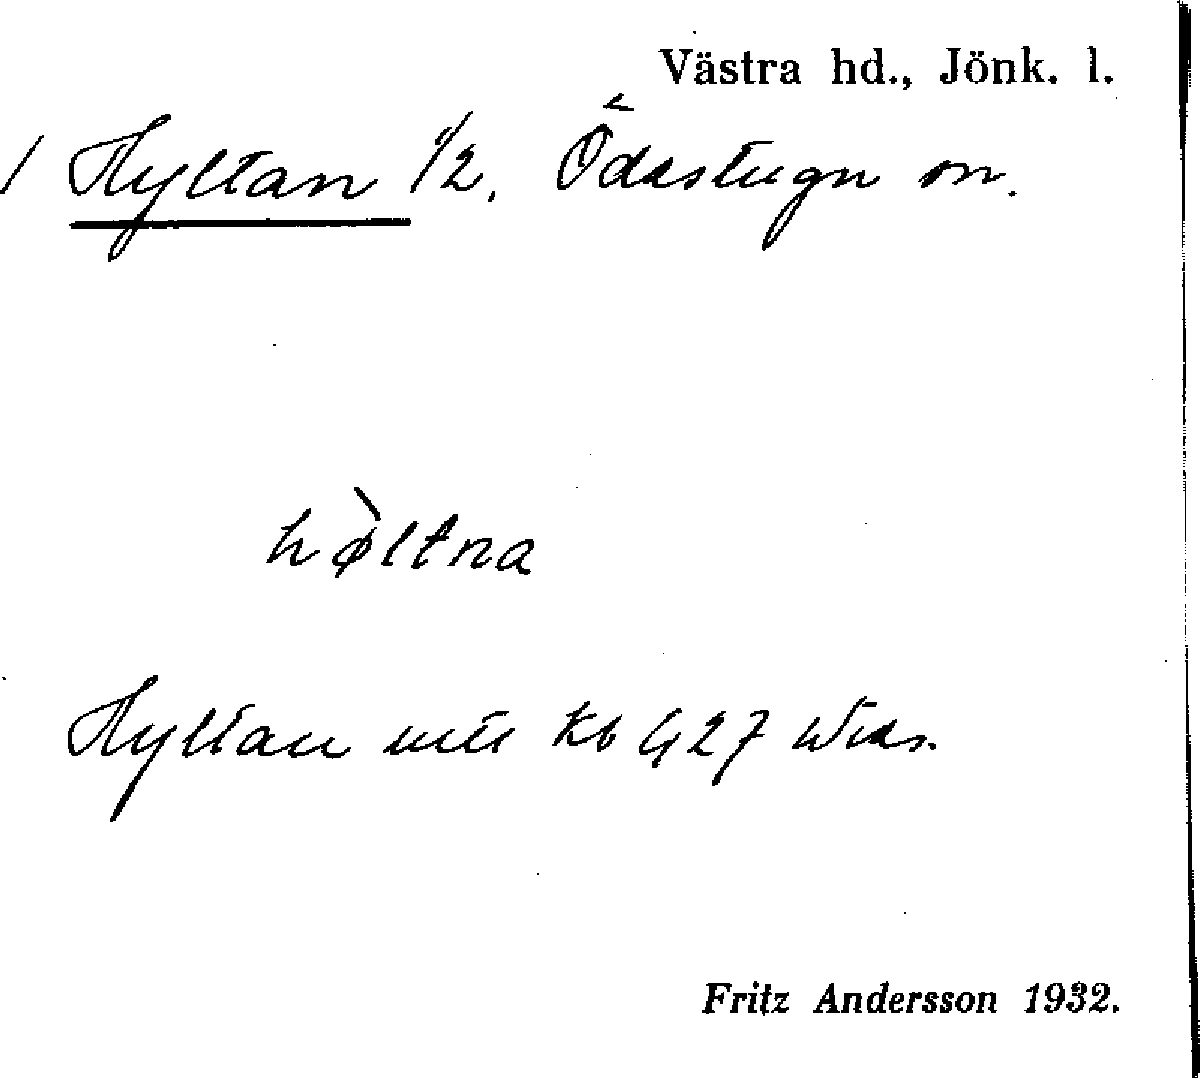 Västra hd., Jönk. l.
/ Hyltan 1/2, Ödestugu sn.
hø̀ltna
Hyltan Kb 427
Fritz Andersson 1932.